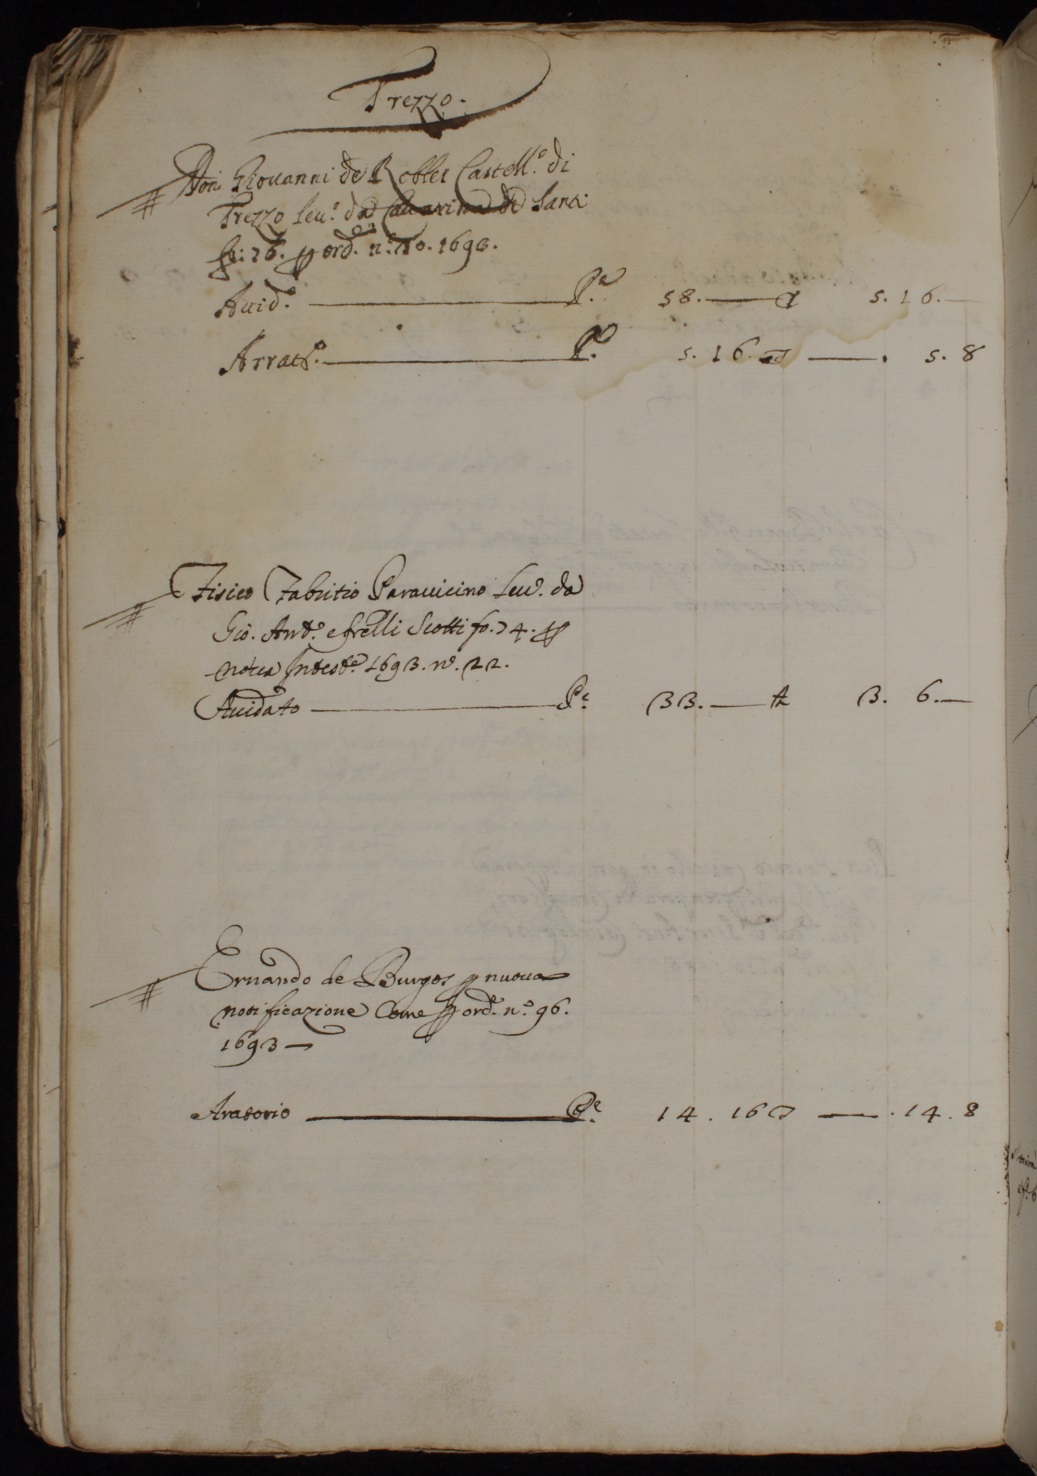 Trezzo.
Don Giovanni de Robles Castell.º di
Trezzo leu.º da Cattarina de Santi
fo: 76. p ord. n.º 1693.
Auid.º P.e 58. — a 5. 16. —
Arrat.º P.e 5. 16. — 5. 8
Fisico Fabritio Parauicino leu.º da
Gio. Ant.º e frelli Scotti fo. 74. p
notta 1693. n.º 22.
Auidato P.e 33. — a 3. 6. —
Ernando de Burgos p nuoua
notificazione Come p ord.e n.º 96.
1693 —
Aratorio P.e 14. 16 — . 14. 8